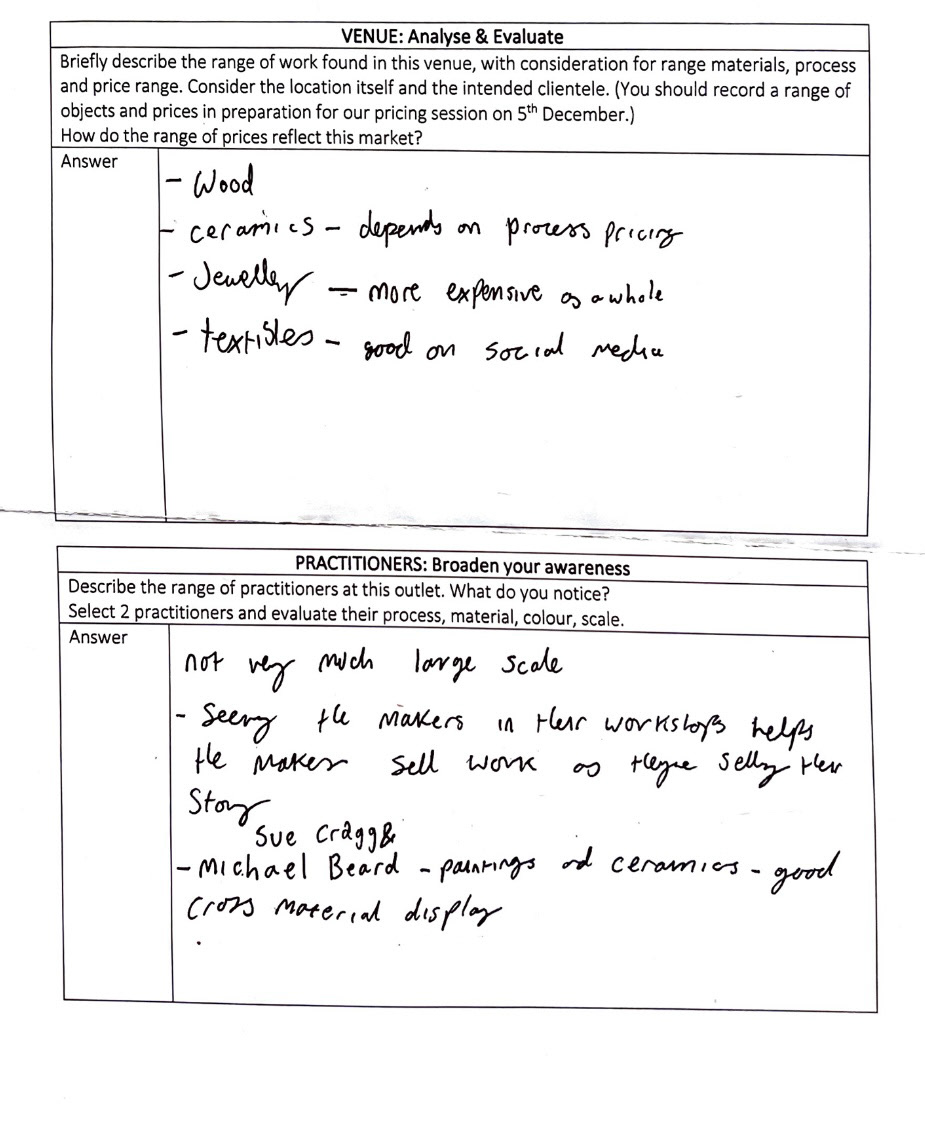 VENUE: Analyse & Evaluate
Briefly describe the range of work found in this venue, with consideration for range materials, process
and price range. Consider the location itself and the intended clientele. (You should record a range of
objects and prices in preparation for our pricing session on 5th December.)
How do the range of prices reflect this market?
Answer
- Wood
- ceramics - depends on process pricing
- Jewellery - more expensive as a whole
- textiles - good on social media
PRACTITIONERS: Broaden your awareness
Describe the range of practitioners at this outlet. What do you notice?
Select 2 practitioners and evaluate their process, material, colour, scale.
Answer
not very much large scale
- Seeing the makers in their workshops helps
the maker sell work as theyre selling their
Story
Sue Cragg &
- Michael Beard - paintings and ceramics - good
cross material display